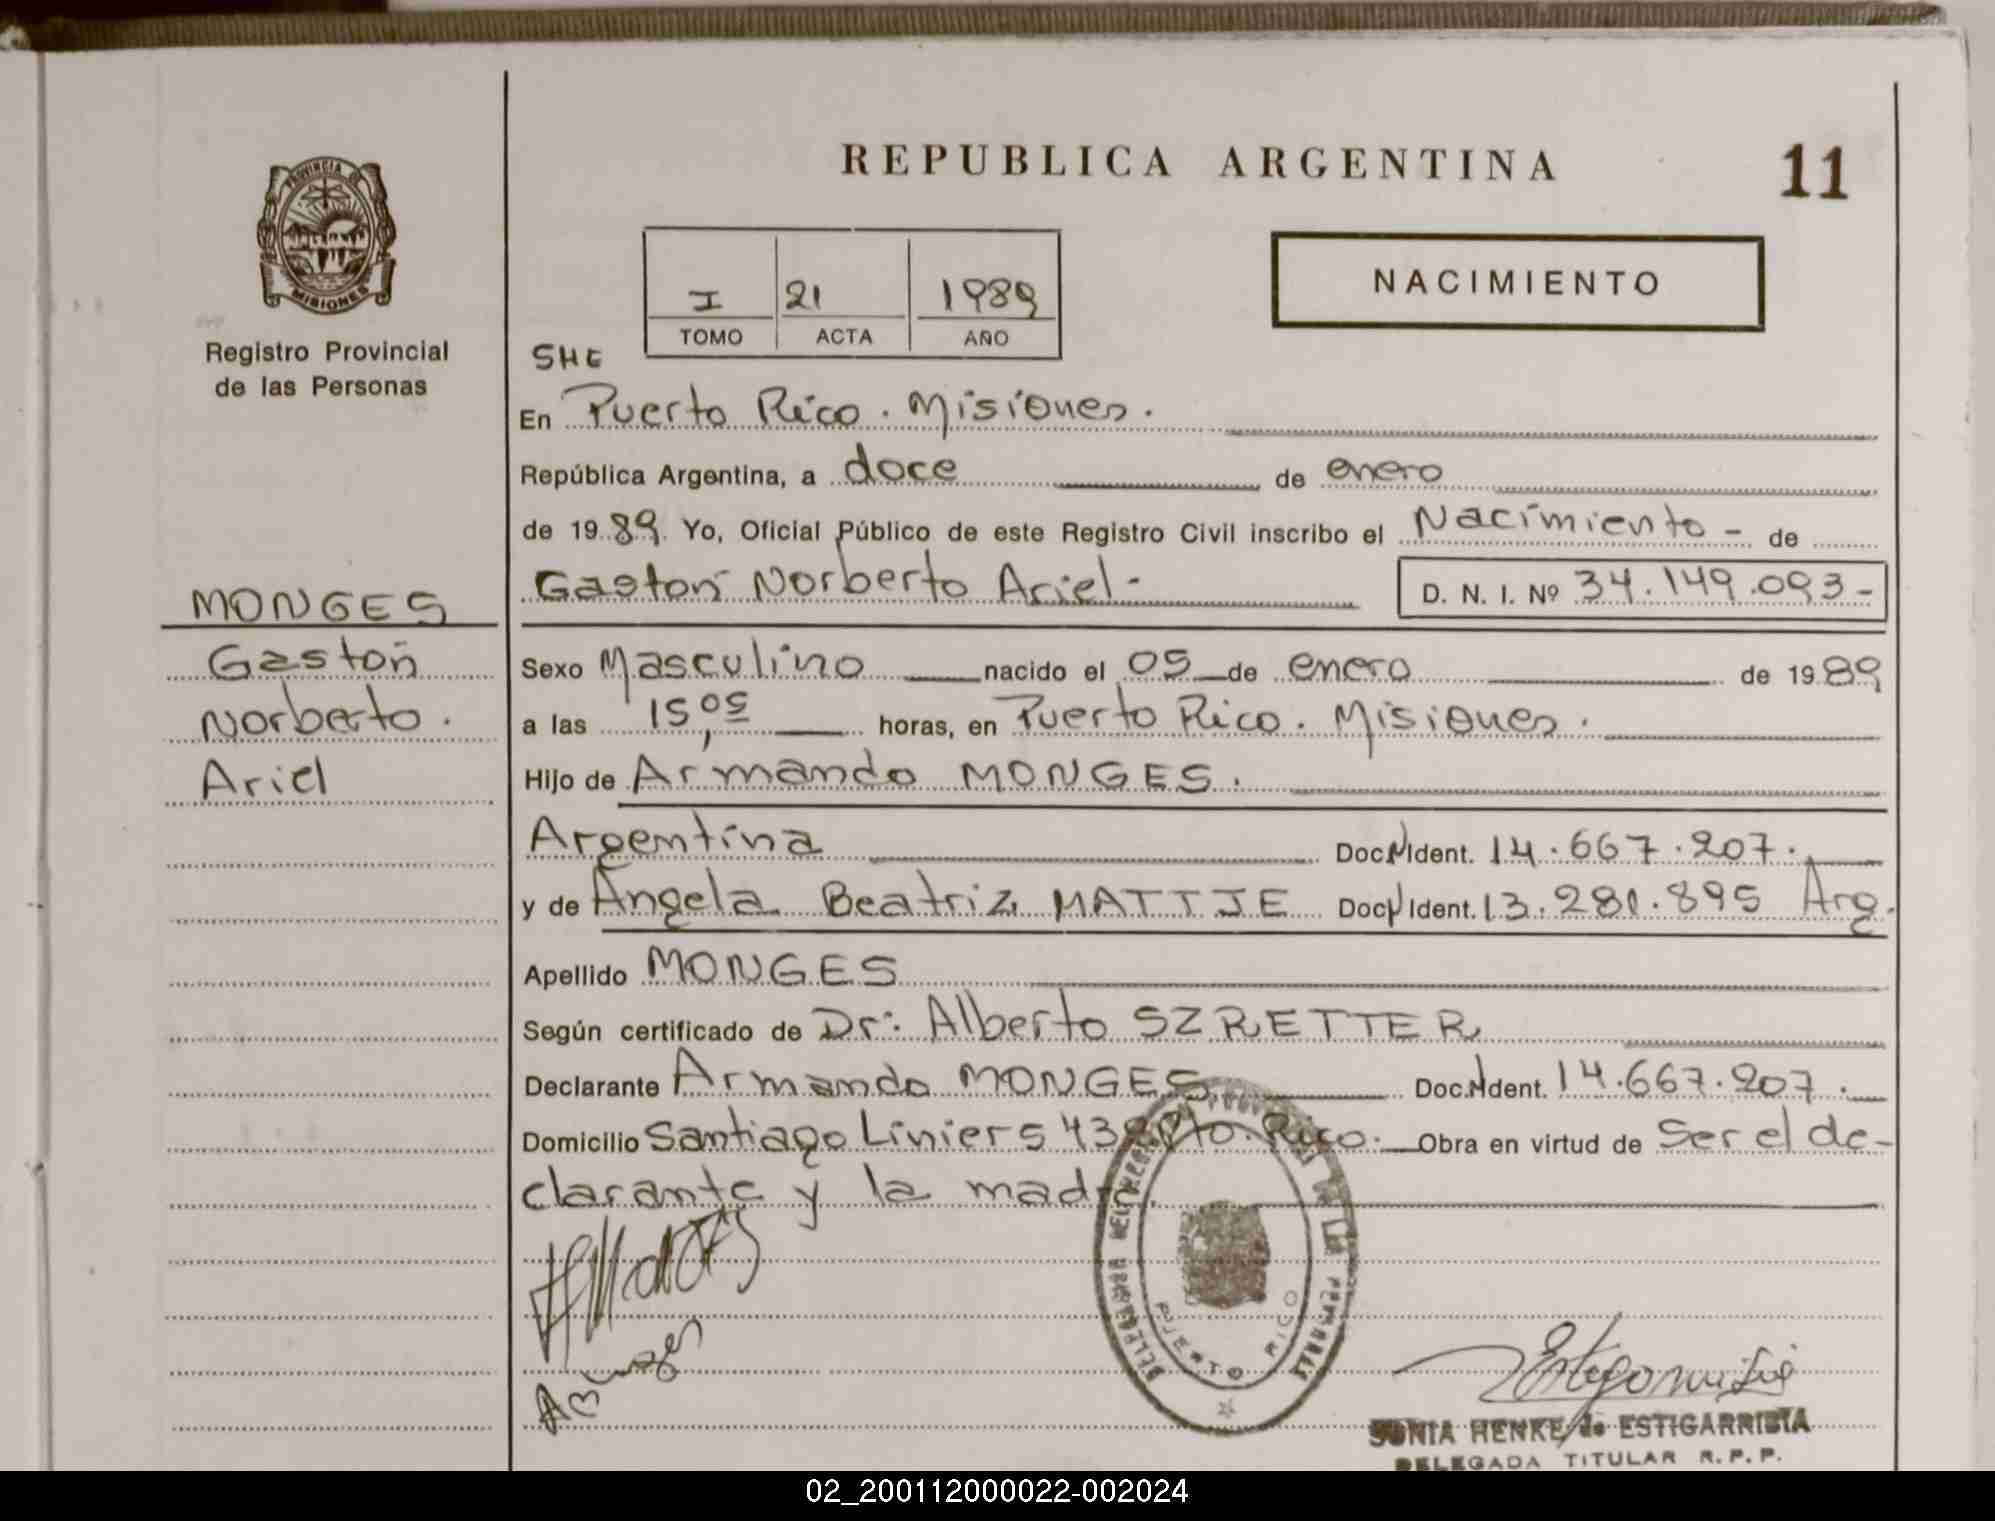 REPUBLICA ARGENTINA
11
PROVINCIA DE
MISIONES
Registro Provincial
de las Personas
I 21 1989
TOMO ACTA AÑO
NACIMIENTO
SHE
En Puerto Rico. Misiones.
República Argentina, a doce de enero
de 1989 Yo, Oficial Público de este Registro Civil inscribo el Nacimiento - de
Gastón Norberto Ariel- D. N. I. Nº 34.149.093-
MONGES
Gastón
Norberto.
Ariel
Sexo Masculino nacido el 05 de enero de 1989
a las 15,05 horas, en Puerto Rico. Misiones.
Hijo de Armando MONGES.
Argentina Doc. Ident. 14.667.207.
y de Angela Beatriz MATTJE Doc. Ident. 13.281.895 Arg.
Apellido MONGES
Según certificado de Dr: Alberto SZRETTER
Declarante Armando MONGES Doc. Ident. 14.667.207.
Domicilio Santiago Liniers Pto. Rico. Obra en virtud de Ser el de-
clarante y la madre.
PUERTO RICO
SONIA HENKE de ESTIGARRIBIA
DELEGADA TITULAR R.P.P.
02_200112000022-002024